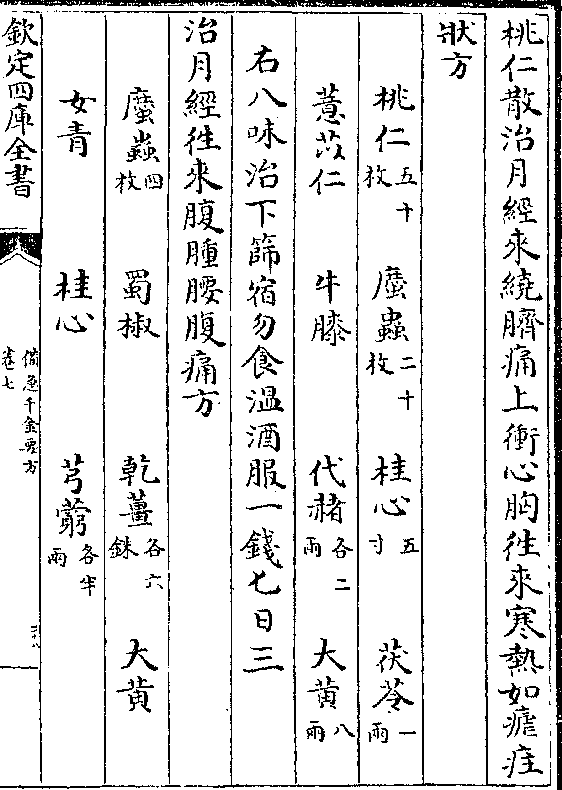 桃仁散治月經來繞臍痛上衝心胸徃來寒熱如瘧疰
狀方
桃仁五十枚 䗪蟲二十枚 桂心五寸 茯苓一兩
薏苡仁 牛膝 代赭各二兩 大黃八兩
右八味治下篩宿勿食溫酒服一錢匕日三
治月經徃來腹腫腰腹痛方
䗪蟲四枚 蜀椒 乾薑各六銖 大黃
女青 桂心 芎藭各半兩
欽定四庫全書
備急千金要方
卷七